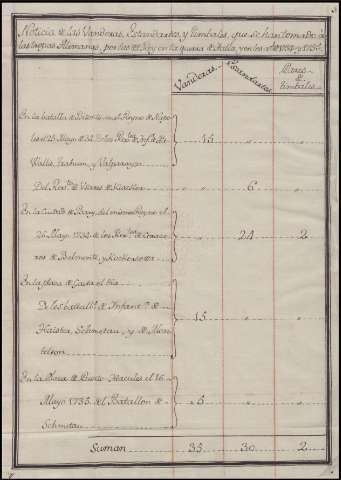 Noticia de las Vanderas, Estandartes, y Timbales, que se han tomado à
las tropas Alemanas, por las del Rey en la guerra de Italia, en los años de 1734 y 1735.
Vanderas. Estandartes Pares de timbales.
En la batalla de Bitonto en el Reyno de Napo-
les el 25 Mayo de 34 de los Regim.tos de Infant.a de
Wallis, " 15 " "
Del Regim.to de " " 6 "
En la Ciudad de Bary, del mismo Reyno el
26 Mayo 1734 de los Regim.tos de Coraze-
ros de Belmonte, y Kockorsowa " 24 2
En la plaza de Gaeta el dia
De los batall.s de Infant.a de
Haister, Schmetau, y de 15 " "
En la Plaza de Puerto Hercules el 16
Mayo 1735 del Batallon de
Schmetau 5 " "
Suman 35 30 2